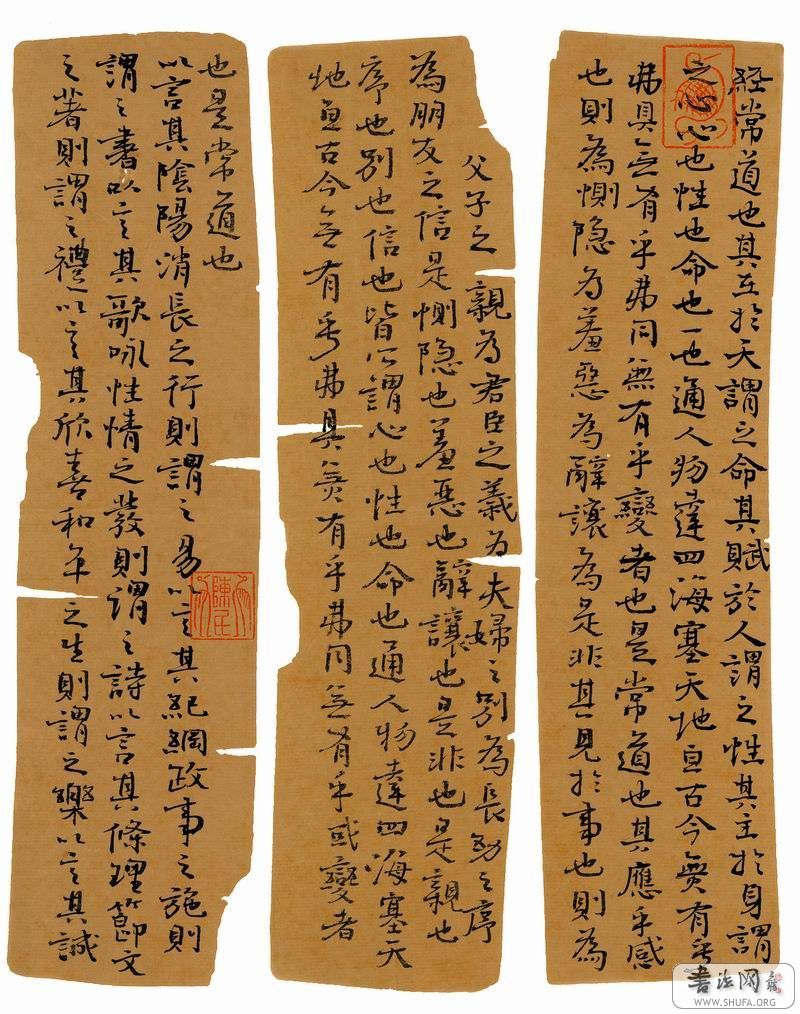 経常道也其在於天謂之命其賦於人謂之性其主於身謂
之心心也性也命也一也通人物達四海塞天地亘古今無有乎
弗具無有乎弗同無有乎變者也是常道也其應乎感
也則為惻隐為羞惡為辭讓為是非其見於事也則為
父子之親為君臣之義為夫婦之別為長幼之序
為朋友之信是惻隐也羞惡也辭讓也是非也是親也
序也別也信也皆所謂心也性也命也通人物達四海塞天
地亘古今無有乎弗具無有乎弗同無有乎或變者
也是常道也
以言其陰陽消長之行則謂之易以言其紀綱政事之施則
謂之書以言其歌咏性情之發則謂之詩以言其條理節文
之著則謂之禮以言其欣喜和平之生則謂之樂以言其誠
书法网
WWW.SHUFA.ORG